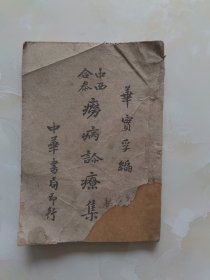 華實孚編
中西合叅
癆病診療集
中華書局印行